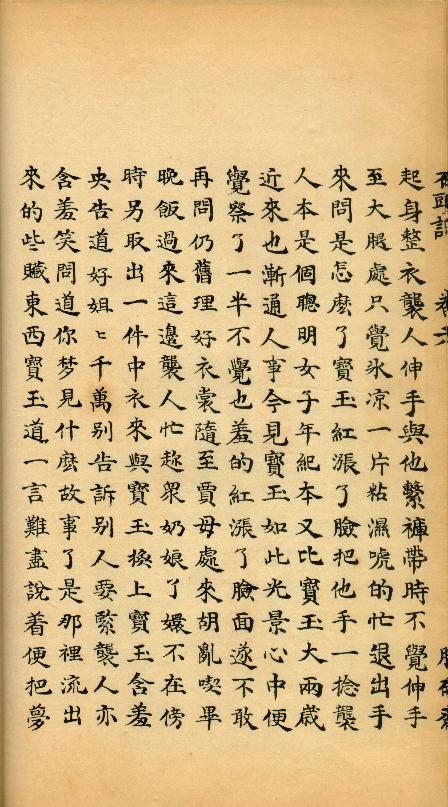 石頭記 卷六 脂硯齋
起身整衣襲人伸手與他繫褲帶時不覺伸手
至大腿處只覺氷凉一片粘濕唬的忙退出手
來問是怎麽了寳玉紅漲了臉把他手一捻襲
人本是個聰明女子年紀本又比寳玉大兩歲
近來也漸通人事今見寳玉如此光景心中便
覺察了一半不覺也羞的紅漲了臉面遂不敢
再問仍舊理好衣裳隨至賈母處來胡亂喫畢
晚飯過來這邊襲人忙趂眾奶娘了嬛不在傍
時另取出一件中衣來與寳玉換上寳玉含羞
央告道好姐〻千萬别告訴别人要緊襲人亦
含羞笑問道你梦見什麽故事了是那裡流出
來的些賍東西寳玉道一言難盡說着便把夢